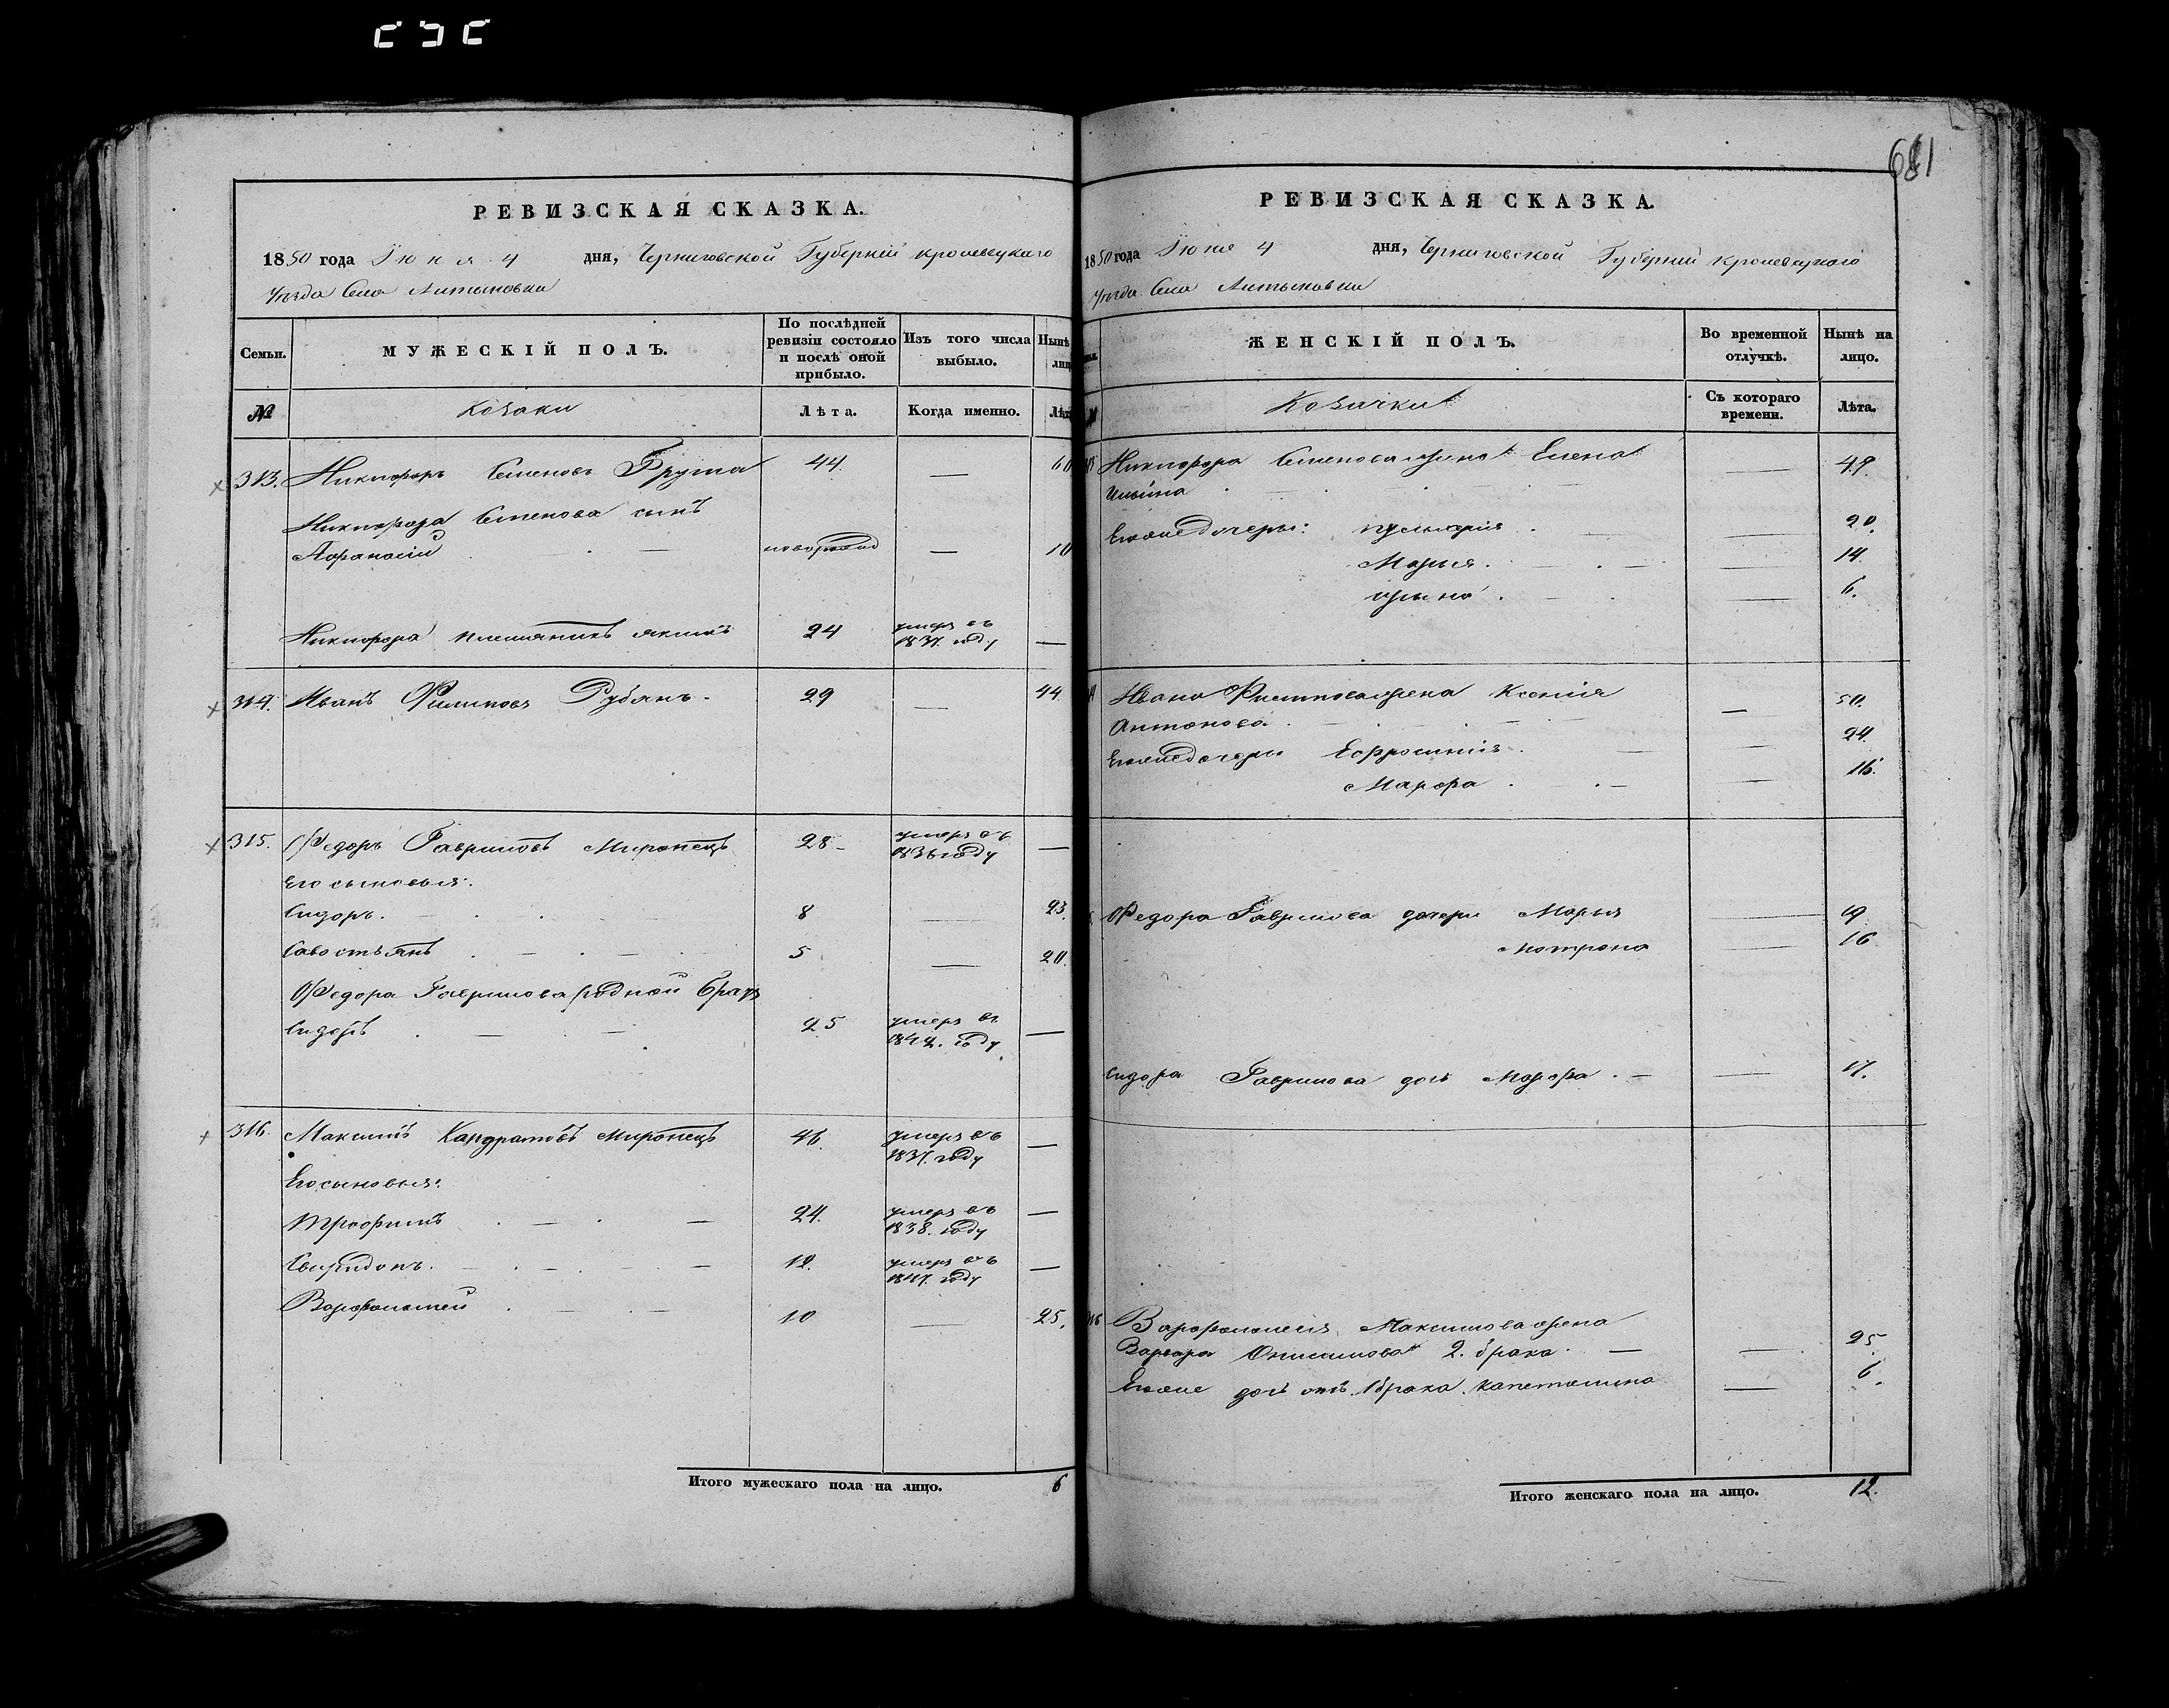 681
РЕВИЗСКАЯ СКАЗКА.
1850 года Июня 4 дня, Черниговской Губернии Кролевецкаго
уѣзда Села
Семьи. МУЖЕСКІЙ ПОЛЪ. По послѣдней ревизіи состояло и послѣ оной прибыло. Изъ того числа выбыло. Нынѣ
№ Козаки Лѣта. Когда именно.
313. Никифоръ Семеновъ 44. — 60
Никифора Семенова сынъ
Афанасій новорожд — 10
Никифора племянникъ Якимъ 24 умеръ въ 1837. году —
314. Иванъ Филиповъ Рубанъ. 29 — 44
315. Федоръ Гавриловъ Миронецъ 28 умеръ въ 1836 году —
Его сыновья:
Сидоръ. 8 — 23.
Савостьянъ 5 — 20.
Федора Гаврилова родной братъ
Сидоръ 25 умеръ въ 1842. году —
316. Максимъ Кандратовъ Миронецъ 46. умеръ въ 1837. году —
Его сыновья:
Трофимъ 24. умеръ въ 1838. году —
Свиридонъ. 12. умеръ въ году —
Варфоломей 10 — 25.
Итого мужескаго пола на лицо. 6
РЕВИЗСКАЯ СКАЗКА.
1850 года Июня 4 дня, Черниговской Губернии Кролевецкаго
уѣзда Села
ЖЕНСКІЙ ПОЛЪ. Во временной отлучкѣ. Нынѣ на лицо.
Козачки Съ котораго времени. Лѣта.
Никифора Семенова жена Елена — 49.
Ильина
Его же дочери: — 20.
Марья. — 14.
Ирына. — 6.
Ивана Филипова жена Ксенія — 50.
Антонова.
Его же дочери Ефросинія. — 24.
Марфа — 16.
Федора Гаврилова дочери Марья — 19
Мотрона — 16
Сидора Гаврилова дочь Марфа. — 17.
Варфоломея Максимова жена
Варвара Онисимова 2. брака — 25
Его же дочь отъ 1 брака. Капетолина — 6.
Итого женскаго пола на лицо. 12.